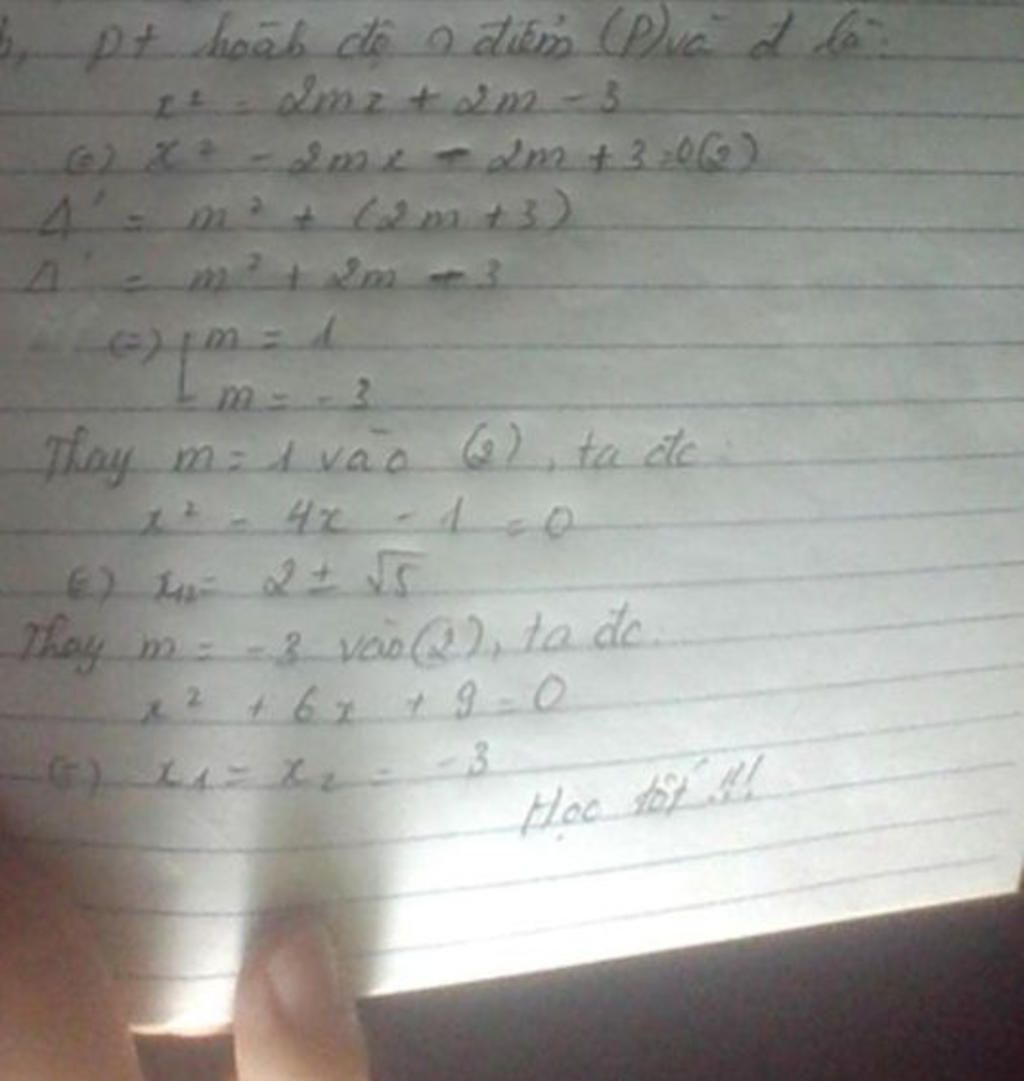 b, pt hoàh độ ∩ điểm (P) và d là:
x² = 2mx + 2m - 3
(=) x² - 2mx - 2m + 3 = 0 (2)
Δ' = m² + (2m + 3)
Δ' = m² + 2m - 3
(=) [ m = 1
m = -3
Thay m = 1 vào (2), ta đc:
x² - 4x - 1 = 0
(=) x₁,₂ = 2 ± √5
Thay m = -3 vào (2), ta đc:
x² + 6x + 9 = 0
(=) x₁ = x₂ = -3
Học tốt !!!